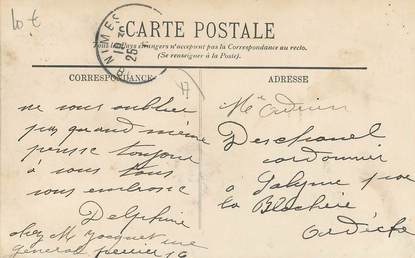 10 €
CARTE POSTALE
Tous les Pays étrangers n'acceptent pas la Correspondance au recto.
(Se renseigner à la Poste).
NIMES
25
CORRESPONDANCE
ne vous oublier
pas quand même
pense toujours
à vous tous
vous embrasse
Delphine
chez Mr Jacquet rue
général
16
ADRESSE
Deschanel
cordonnier
à Salyme par
la Blachère
Ardèche